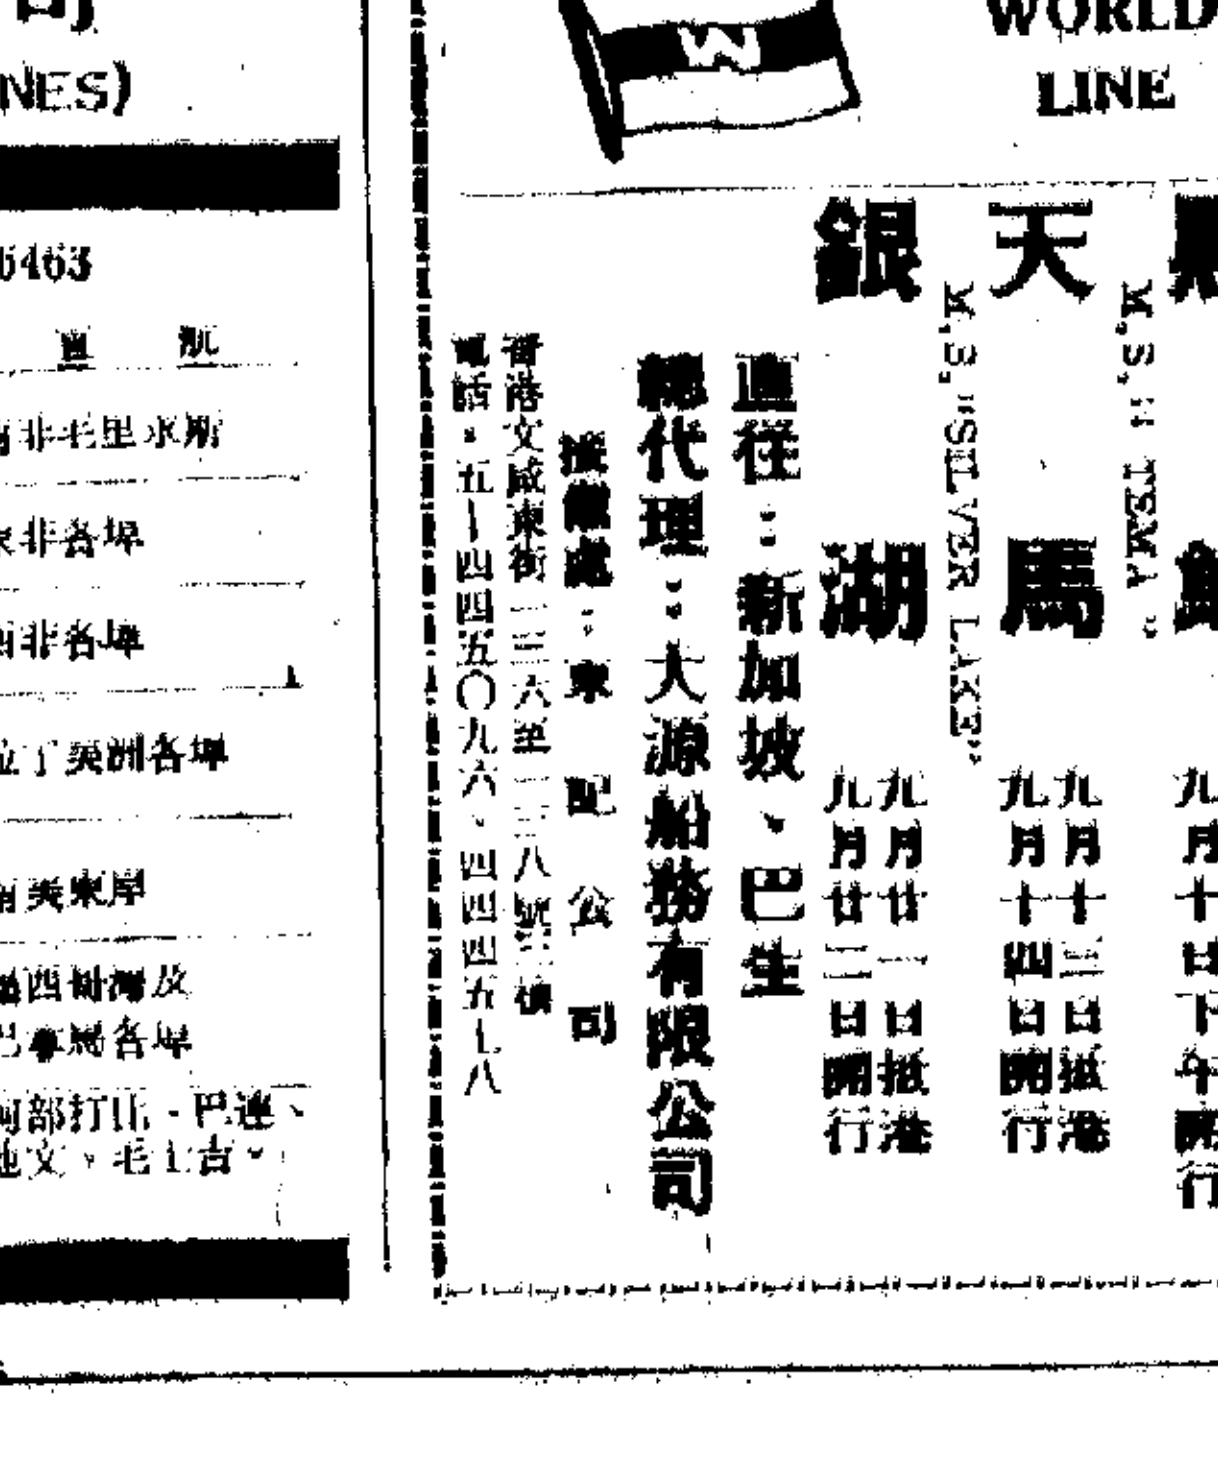 司
NES)
5463
直航
南非毛里求斯
東非各埠
西非各埠
拉丁美洲各埠
南美東岸
墨西哥灣及
巴拿馬各埠
WORLD
LINE
九月十
日下午開行
M.S." TEMA"
天馬
九月十三日抵港
九月十四日開行
M.S."SILVER LAKE"
銀湖
九月廿一日抵港
九月廿二日開行
直徃：新加坡、巴生
總代理：大源船務有限公司
接載處：東配公司
香港文咸東街一三六至一三八號三樓
電話．五—四四五〇九六、四四四五七八